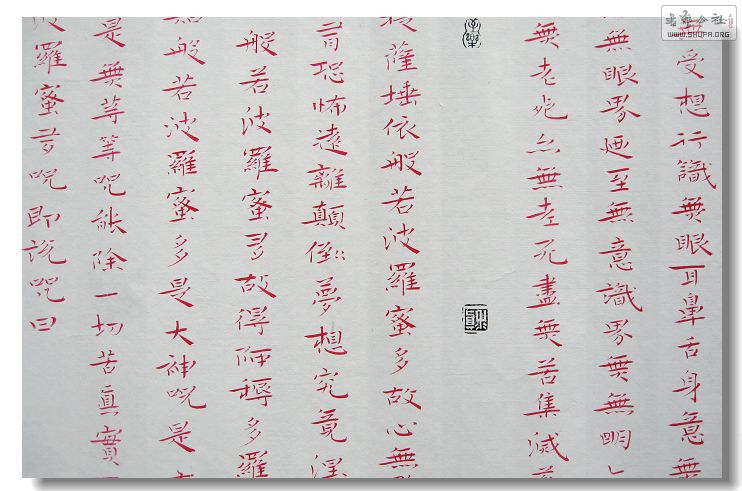 無受想行識無眼耳鼻舌身意無
無眼界廼至無意識界無無明
無老死亦無老死盡無苦集滅
薩埵依般若波羅蜜多故心無
有恐怖遠離顛倒夢想究竟涅
般若波羅蜜多故得阿耨多羅
知般若波羅蜜多是大神呪是
是無等等呪能除一切苦真實
波羅蜜多呪即說呪曰
WWW.SHUFA.ORG